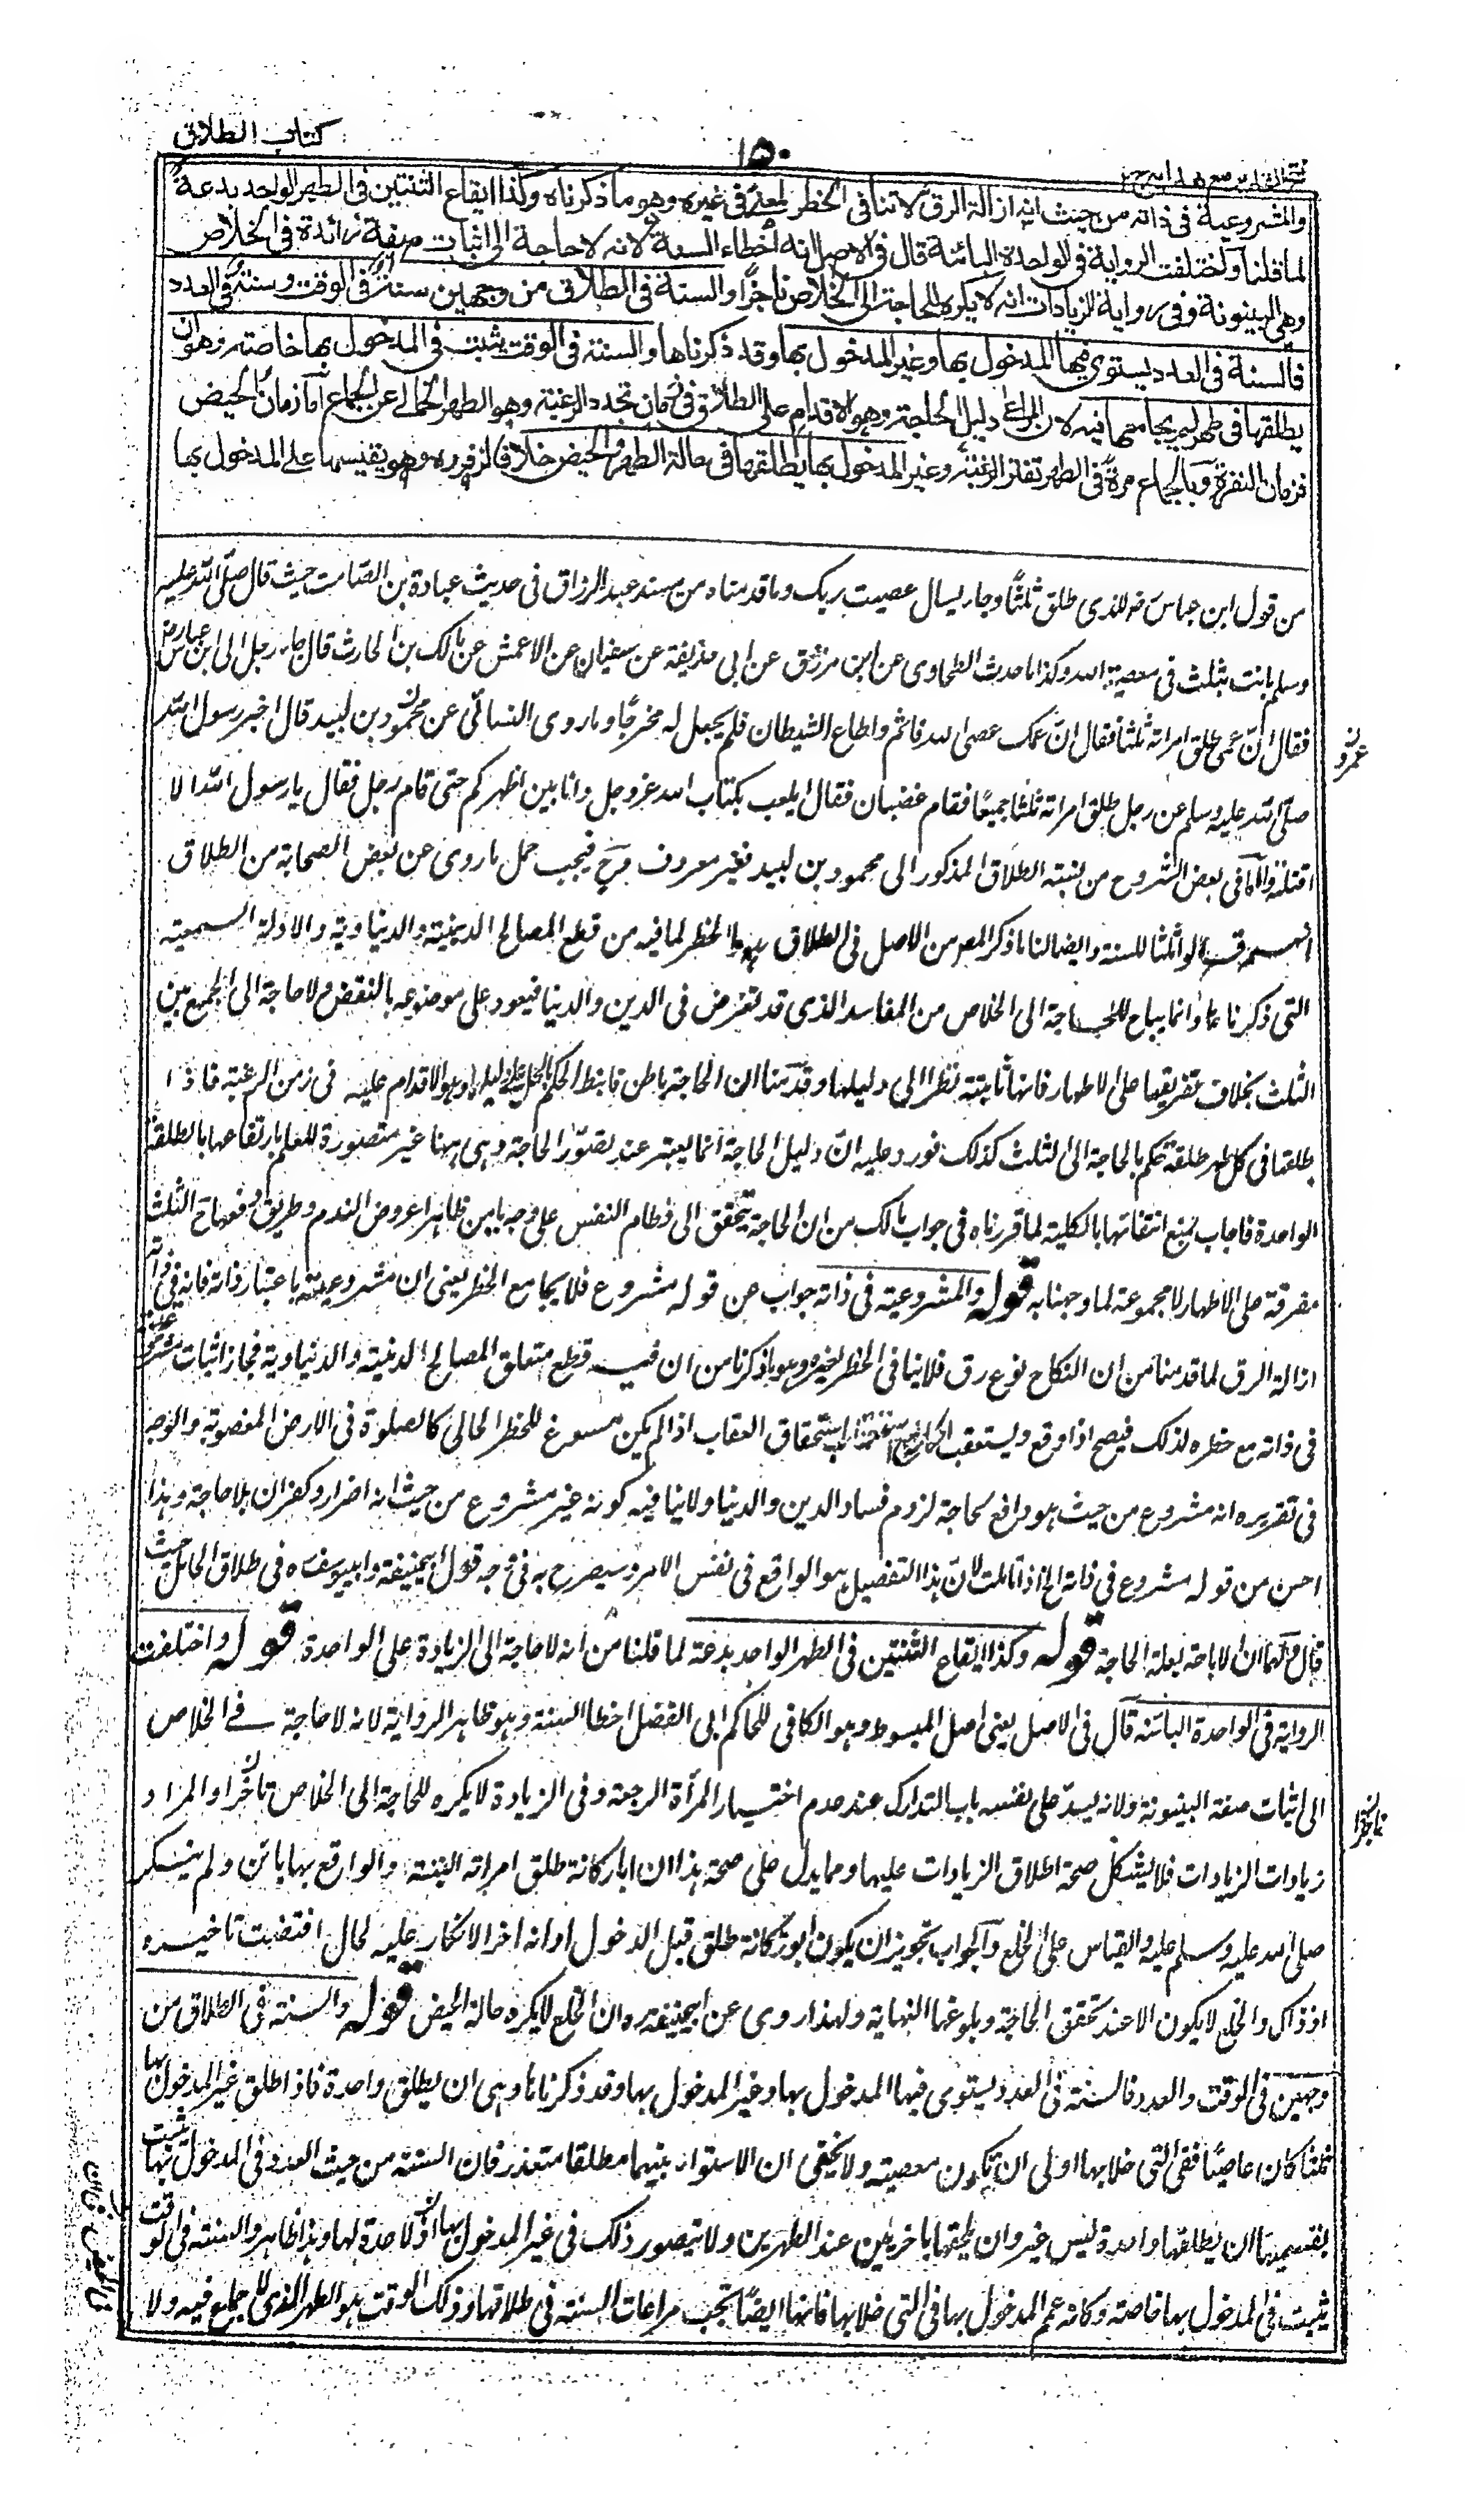 كتاب الطلاق
١٥٠
والمشروعية في ذاته من حيث انه ازالة الرق لا تنافي الحظر لمعنى في غيره وهو ما ذكرناه وكذا ايقاع الثنتين في الطهر الواحد بدعة
لما قلنا واختلفت الرواية في الواحدة البائنة قال في الاصل انه اخطاء السنة لانه لا حاجة الى اثبات صفة زائدة في الخلاص
وهي البينونة وفي رواية الزيادات انه لا يكره للحاجة الى الخلاص ناجزا والسنة في الطلاق من وجهين سنة في الوقت وسنة في العدد
فالسنة في العدد يستوي فيها المدخول بها وغير المدخول بها وقد ذكرناها والسنة في الوقت يثبت في المدخول بها خاصة وهو ان
يطلقها في طهر لم يجامعها فيه لان المراعى دليل الحاجة وهو الاقدام على الطلاق في زمان تجدد الرغبة وهو الطهر الخالي عن الجماع اما زمان الحيض
فزمان النفرة وبالجماع مرة في الطهر تفتر الرغبة وغير المدخول بها يطلقها في حالة الطهر والحيض خلافا لزفر ره وهو يقيسها على المدخول بها
من قول ابن عباس رض للذي طلق ثلثا وجاء يسال عصيت ربك وما قدمناه من مسند عبد الرزاق في حديث عبادة بن الصامت حيث قال صلى الله عليه
وسلم بانت بثلث في معصية الله وكذا ما حدث الطحاوي عن ابن مرزوق عن ابي حذيفة عن سفيان عن الاعمش عن مالك بن الحارث قال جاء رجل الى ابن عباس رض
فقال ان عمى طلق امراته ثلثا فقال ان عمك عصى الله فاثم واطاع الشيطان فلم يجعل له مخرجا وما روى النسائي عن محمود بن لبيد قال اخبر رسول الله
صلى الله عليه وسلم عن رجل طلق امراته ثلثا جميعا فقام غضبان فقال ايلعب بكتاب الله عز وجل وانا بين اظهركم حتى قام رجل فقال يا رسول الله الا
اقتله واما ما في بعض الشروح من نسبة الطلاق المذكور الى محمود بن لبيد فغير معروف وح فيجب حمل ما روى عن بعض الصحابة من الطلاق
انهم قالوا ثلثا للسنة وايضا لنا ما ذكر المص من الاصل في الطلاق هو الحظر لما فيه من قطع المصالح الدينية والدنياوية والادلة السمعية
التي ذكرناها وانما يباح للحاجة الى الخلاص من المفاسد الذي قد تعرض في الدين والدنيا فيعود على موضوعه بالنقض ولا حاجة الى الجمع بين
الثلث بخلاف تفريقها على الاطهار فانها ثابتة نظرا الى دليلها وقدمنا ان الحاجة باطن فانيط الحكم بالحل على دليلها وهو الاقدام عليه في زمن الرغبة فاذا
طلقها في كل طهر طلقة تحكم بالحاجة الى الثلث كذلك فورد عليه ان دليل الحاجة انما يعتبر عند تصور الحاجة وهي ههنا غير متصورة للعلم بارتفاعها بالطلقة
الواحدة فاجاب بمنع انتفائها بالكلية لما قررناه في جواب مالك من ان الحاجة يتحقق الى فطام النفس على وجه يامن ظاهرا عروض الندم وطريق دفعها ح الثلث
مفرقة على الاطهار لا مجموعة لما وجهنا به قوله والمشروعية في ذاته جواب عن قوله مشروع فلا يجامع الحظر يعني ان مشروعيته باعتبار ذاته فانه في ذاته
ازالة الرق لما قدمنا من ان النكاح نوع رق فلا ينافي الحظر لغيره وهو ما ذكرنا من ان فيه قطع متعلق المصالح الدينية والدنياوية فجاز اثبات مشروعيته
في ذاته مع حظره لذلك فيصح اذا وقع ويستعقب احكامه مع استعقاب استحقاق العقاب اذا لم يكن مسوغ للحظر الحالي كالصلوة في الارض المغصوبة والوجه
في تقريره انه مشروع من حيث هو دافع لحاجة لزوم فساد الدين والدنيا ولا ينافيه كونه غير مشروع من حيث انه اضرار وكفران بلا حاجة وهذا
احسن من قوله مشروع في ذاته الخ اذا تاملت لان هذا التفصيل هو الواقع في نفس الامر وسيصرح به في وجه قول ابيحنيفة وابييوسف ره في طلاق الحامل حيث
قال لهما ان الاباحة بعلة الحاجة قوله وكذا ايقاع الثنتين في الطهر الواحد بدعة لما قلنا من انه لا حاجة الى الزيادة على الواحدة قوله واختلفت
الرواية في الواحدة البائنة قال في الاصل يعني اصل المبسوط وهو الكافي للحاكم ابي الفضل اخطا السنة وهو ظاهر الرواية لانه لا حاجة في الخلاص
الى اثبات صفة البينونة ولانه يسد على نفسه باب التدارك عند عدم اختيار المرأة الرجعة وفي الزيادة لا يكره للحاجة الى الخلاص ناجزا والمراد
زيادات الزيادات فلا يشكل صحة اطلاق الزيادات عليها ومما يدل على صحة هذا ان ابا ركانة طلق امراته البتة والواقع بها بائن ولم ينكر
صلى الله عليه وسلم عليه والقياس على الخلع والجواب تجويز ان يكون ابو ركانة طلق قبل الدخول او انه اخر الانكار عليه لحال اقتضت تاخيره
اذ ذاك والخلع لا يكون الا عند تحقق الحاجة وبلوغها النهاية ولهذا روى عن ابيحنيفة ره ان الخلع لا يكره حالة الحيض قوله والسنة في الطلاق من
وجهين في الوقت والعدد فالسنة في العدد يستوي فيها المدخول بها وغير المدخول بها وقد ذكرناها وهي ان يطلق واحدة فاذا طلق غير المدخول بها
ثلثا كان عاصيا ففي التي خلا بها اولى ان تكون معصية ولا يخفى ان الاستواء بينهما مطلقا متعذر فان السنة من حيث العدد في المدخول بها يثبت
بقسميها ان يطلقها واحدة ليس غير وان يلحقها باخريين عند الطهرين ولا يتصور ذلك في غير المدخول بها اذ لا عدة لها وهذا ظاهر والسنة في الوقت
يثبت في المدخول بها خاصة وكانه عم المدخول بها في التي خلا بها فانها ايضا تجب مراعات السنة في طلاقها وذلك الوقت هو الطهر الذي لا جماع فيه ولا